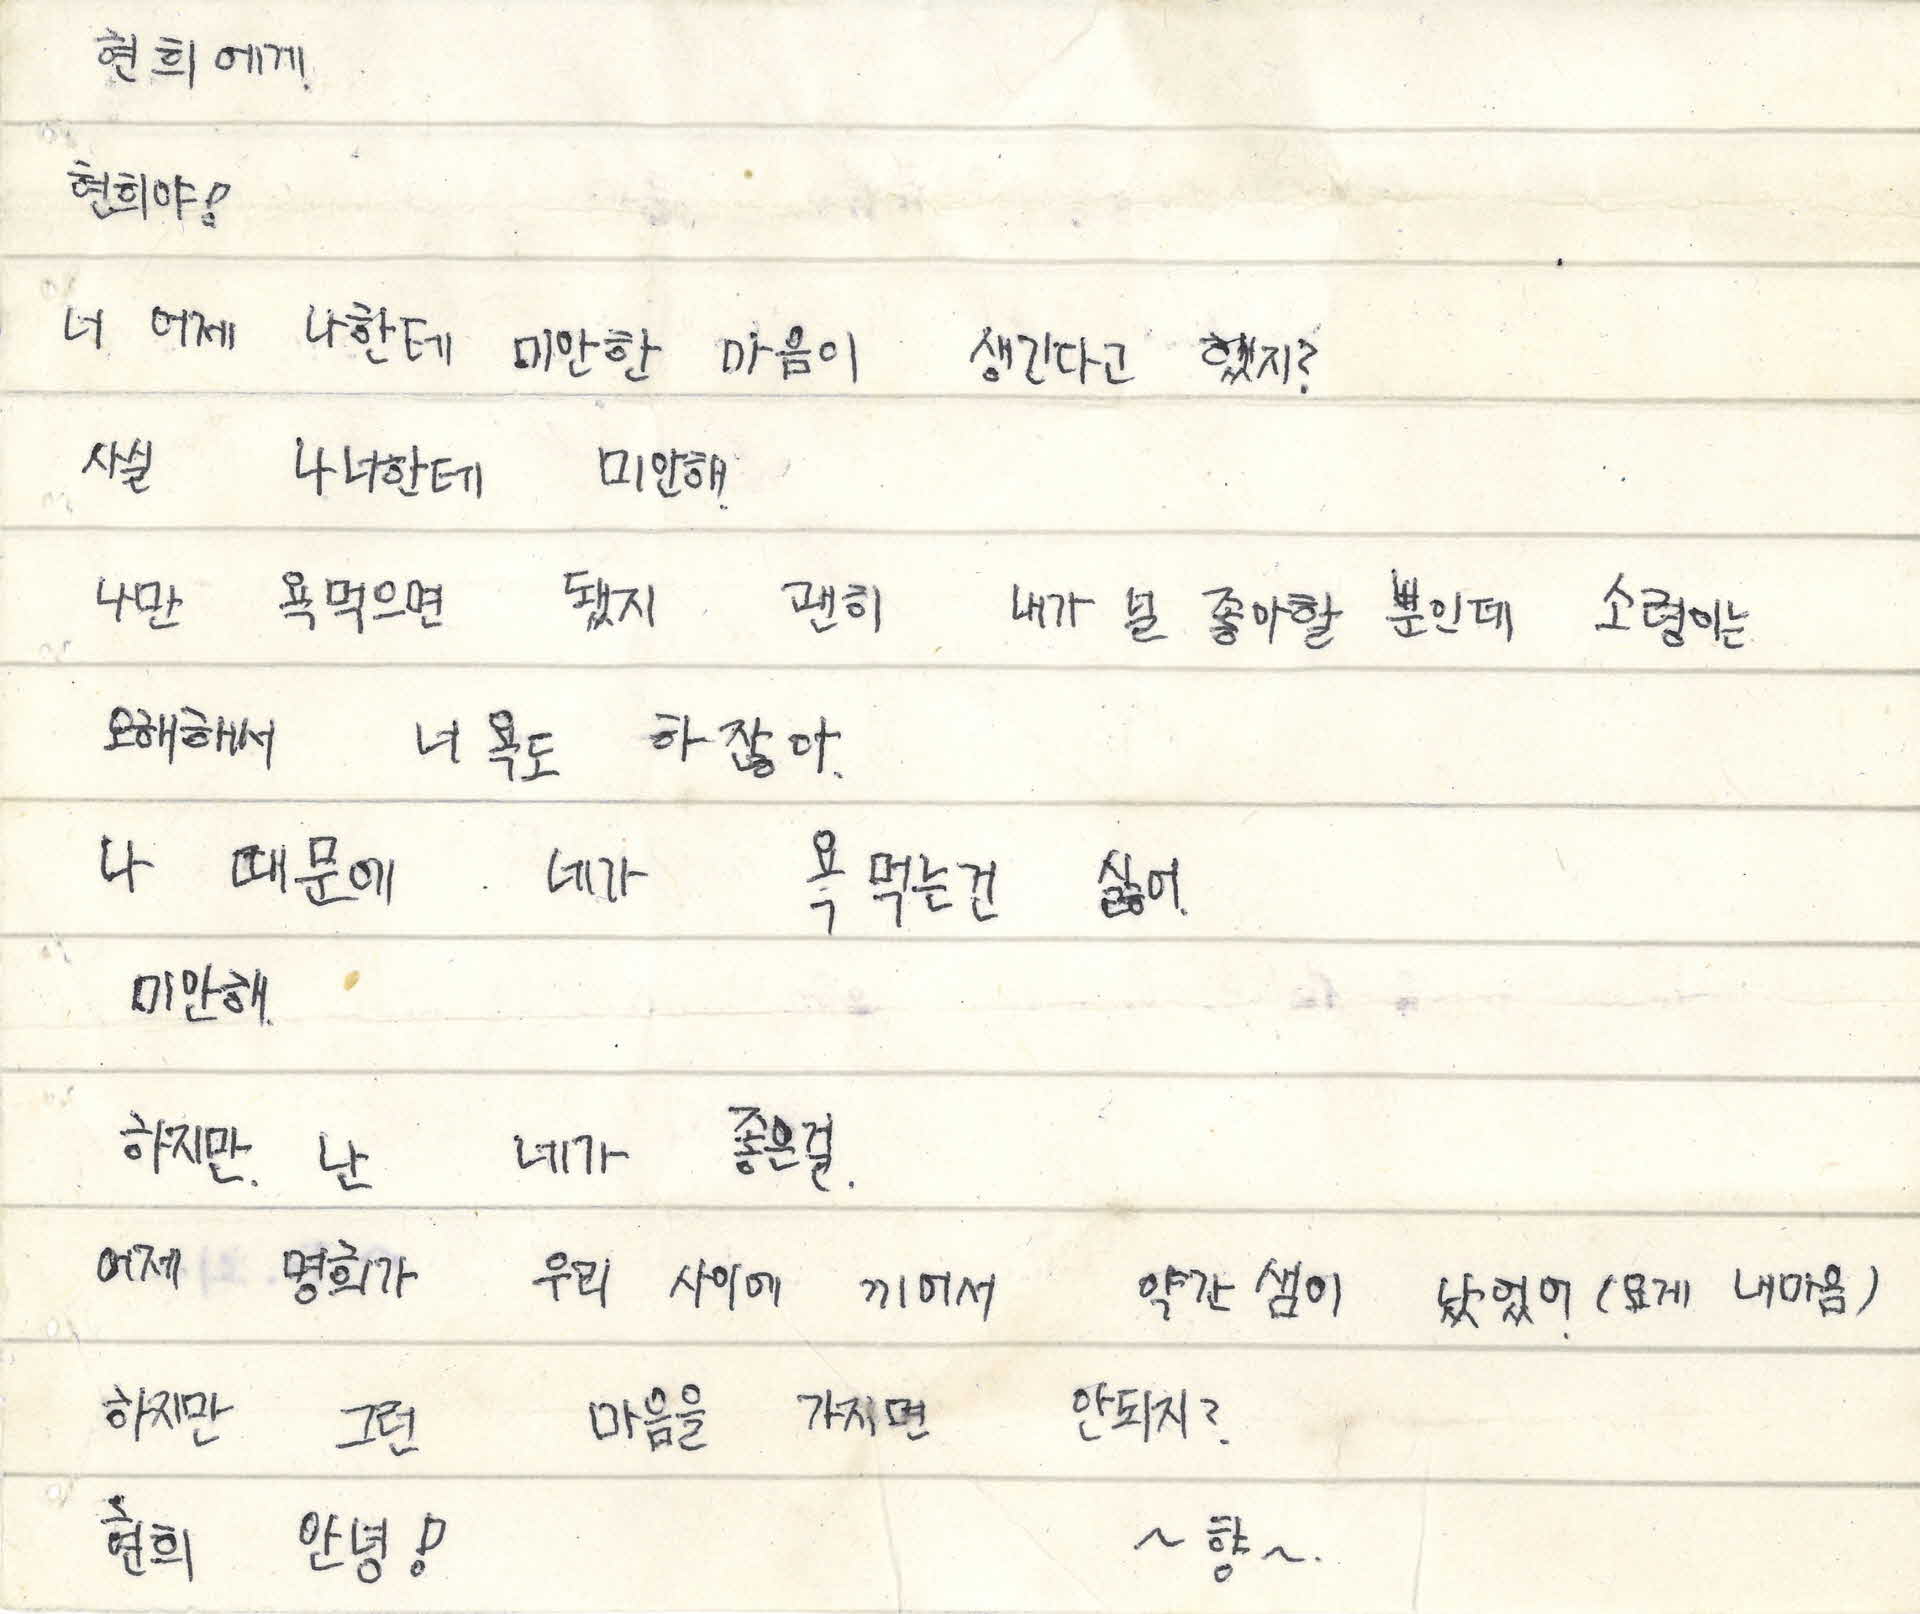 현희에게.
현희야!
너 어제 나한테 미안한 마음이 생긴다고 했지?
사실 나 너한테 미안해.
나만 욕먹으면 됐지 괜히 내가 널 좋아할 뿐인데 소령이는
오해해서 너 욕도 하잖아.
나 때문에 네가 욕 먹는건 싫어.
미안해.
하지만. 난 네가 좋은걸.
어제 명희가 우리 사이에 끼어서 약간 샘이 났었어. (요게 내마음)
하지만 그런 마음을 가지면 안되지?
현희 안녕! ~향~.